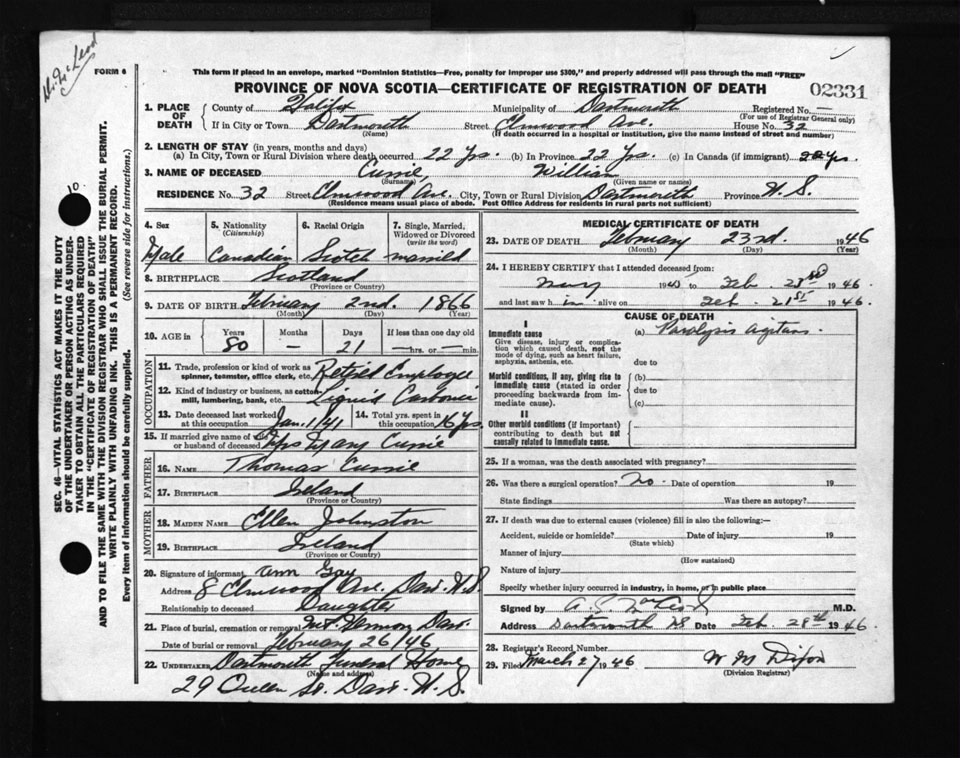 H. McLeod
FORM 6
This form if placed in an envelope, marked "Dominion Statistics—Free, penalty for improper use $300," and properly addressed will pass through the mail "FREE"
PROVINCE OF NOVA SCOTIA—CERTIFICATE OF REGISTRATION OF DEATH 02331
1. PLACE OF DEATH { County of Halifax Municipality of Dartmouth Registered No. —
(For use of Registrar General only)
If in City or Town Dartmouth Street Elmwood Ave. House No. 32
(Name) (If death occurred in a hospital or institution, give the name instead of street and number)
2. LENGTH OF STAY (in years, months and days)
(a) In City, Town or Rural Division where death occurred 22 Yrs. (b) In Province 22 Yrs. (c) In Canada (if immigrant) 22 yrs.
3. NAME OF DECEASED Currie, William
(Surname) (Given name or names)
RESIDENCE No. 32 Street Elmwood Ave. City, Town or Rural Division Dartmouth Province N.S.
(Residence means usual place of abode. Post Office Address for residents in rural parts not sufficient)
4. Sex 5. Nationality (Citizenship) 6. Racial Origin 7. Single, Married, Widowed or Divorced (write the word)
Male Canadian Scotch married
8. BIRTHPLACE Scotland
(Province or Country)
9. DATE OF BIRTH February 2nd. 1866
(Month) (Day) (Year)
10. AGE in Years Months Days If less than one day old
80 — 21 —hrs. or —min.
OCCUPATION
11. Trade, profession or kind of work as spinner, teamster, office clerk, etc. Retired Employee
12. Kind of industry or business, as cotton mill, lumbering, bank, etc. Liquid Carbonic
13. Date deceased last worked at this occupation Jan. 1/41 14. Total yrs. spent in this occupation 16 yrs
15. If married give name of wife or husband of deceased Mrs Mary Currie
FATHER
16. NAME Thomas Currie
17. BIRTHPLACE Ireland
(Province or Country)
MOTHER
18. MAIDEN NAME Ellen Johnston
19. BIRTHPLACE Ireland
(Province or Country)
20. Signature of informant Ann Gay
Address 8 Elmwood Ave. Dart. N.S.
Relationship to deceased Daughter
21. Place of burial, cremation or removal Mt. Vernon Dart.
Date of burial or removal February 26/46
22. UNDERTAKER Dartmouth Funeral Home
(Name and address)
29 Queen St. Dart. N.S.
MEDICAL CERTIFICATE OF DEATH
23. DATE OF DEATH February 23rd. 1946
(Month) (Day) (Year)
24. I HEREBY CERTIFY that I attended deceased from:
1945 to Feb. 23rd 1946
and last saw him alive on Feb. 21st 1946.
CAUSE OF DEATH
I
Immediate cause (a) Paralysis Agitans.
Give disease, injury or complication which caused death, not the mode of dying, such as heart failure, asphyxia, asthenia, etc. due to
Morbid conditions, if any, giving rise to immediate cause (stated in order proceeding backwards from immediate cause). (b)
due to
(c)
II
Other morbid conditions (if important) contributing to death but not causally related to immediate cause.
25. If a woman, was the death associated with pregnancy?
26. Was there a surgical operation? no. Date of operation 19
State findings Was there an autopsy?
27. If death was due to external causes (violence) fill in also the following:—
Accident, suicide or homicide? Date of injury 19
(State which)
Manner of injury
(How sustained)
Nature of injury
Specify whether injury occurred in industry, in home, or in public place
Signed by M.D.
Address Dartmouth NS Date Feb. 28th 1946
28. Registrar's Record Number
29. Filed March 27 1946 W M Dixon
(Division Registrar)
SEC. 46—VITAL STATISTICS ACT MAKES IT THE DUTY
OF THE UNDERTAKER OR PERSON ACTING AS UNDER-
TAKER TO OBTAIN ALL THE PARTICULARS REQUIRED
IN THE "CERTIFICATE OF REGISTRATION OF DEATH"
AND TO FILE THE SAME WITH THE DIVISION REGISTRAR WHO SHALL ISSUE THE BURIAL PERMIT.
WRITE PLAINLY WITH UNFADING INK. THIS IS A PERMANENT RECORD.
Every item of information should be carefully supplied. (See reverse side for instructions.)
10